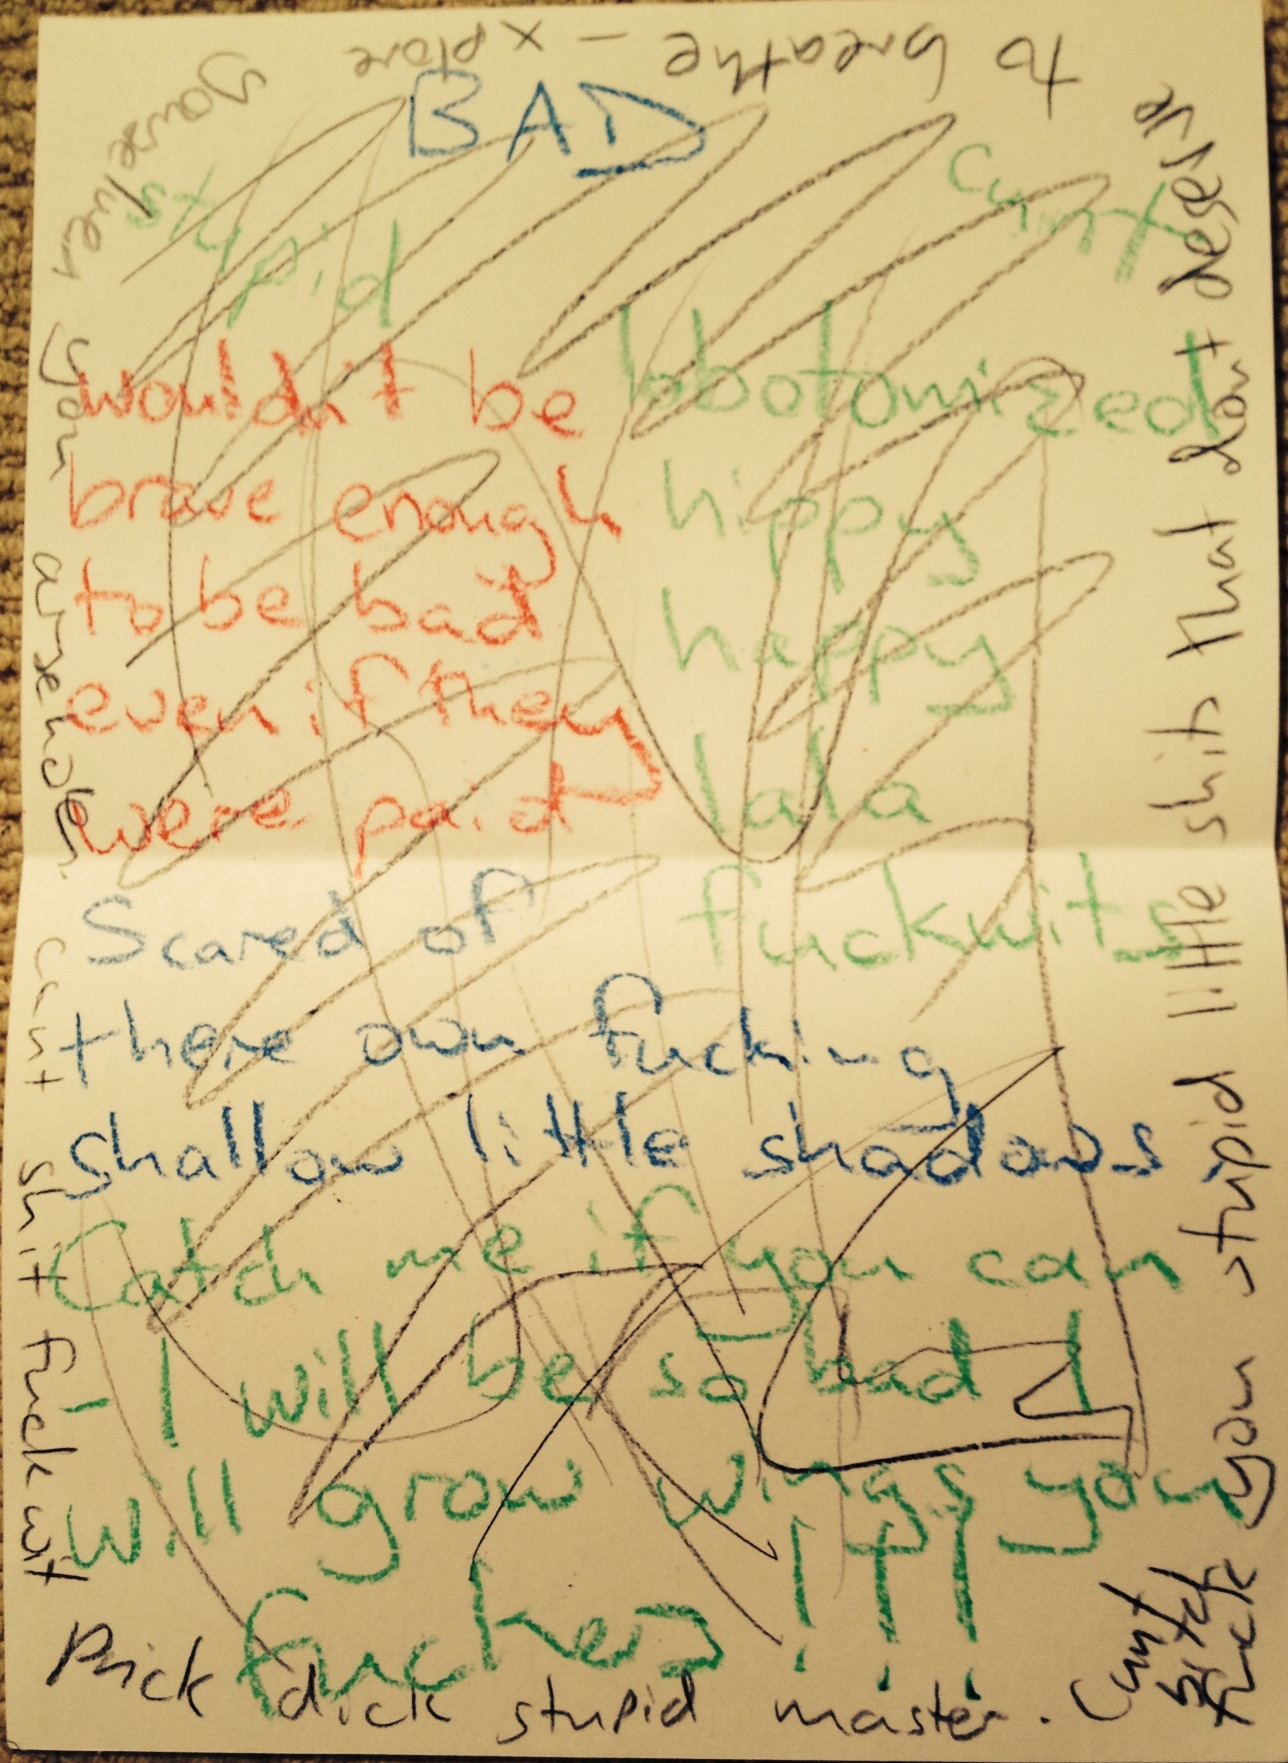 BAD
stupid
cunt
wouldn't be
brave enough
to be bad
even if they
were paid
lobotomized
hippy
happy
lala
fuckwits
Scared of
there own fucking
shallow little shadows
Catch me if you can
- I will be so bad I
will grow wings you
fuckers !!!
Prick dick stupid master. Cunt
bitch
fuck you stupid little shit that don't deserve
to breathe - xplore
yourselves
you arseholes. cunt shit fuckwit